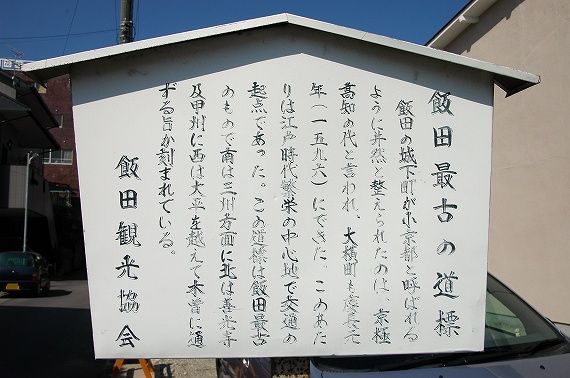 飯田最古の道標
飯田の城下町が小京都と呼ばれる
ように井然と整えられたのは、京極
高知の代と言われ、大横町も慶長元
年(一五九六)にできた。このあた
りは江戸時代繁栄の中心地で交通の
起点であった。この道標は飯田最古
のもので南は三州方面に北は善光寺
及甲州に西は大平を越えて木曽に通
ずる旨が刻まれている。
飯田観光協会